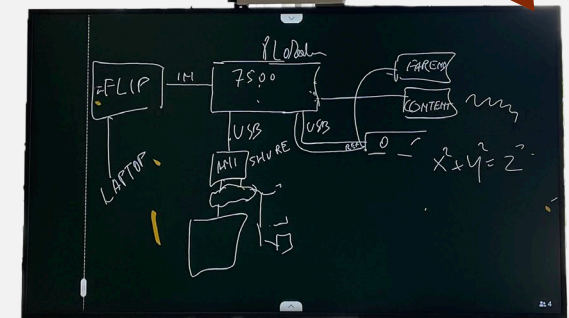 FLIP
IN
7500
FAREND
CONTENT
USB
USB
SHURE
LAPTOP
x²+y²=z²
4